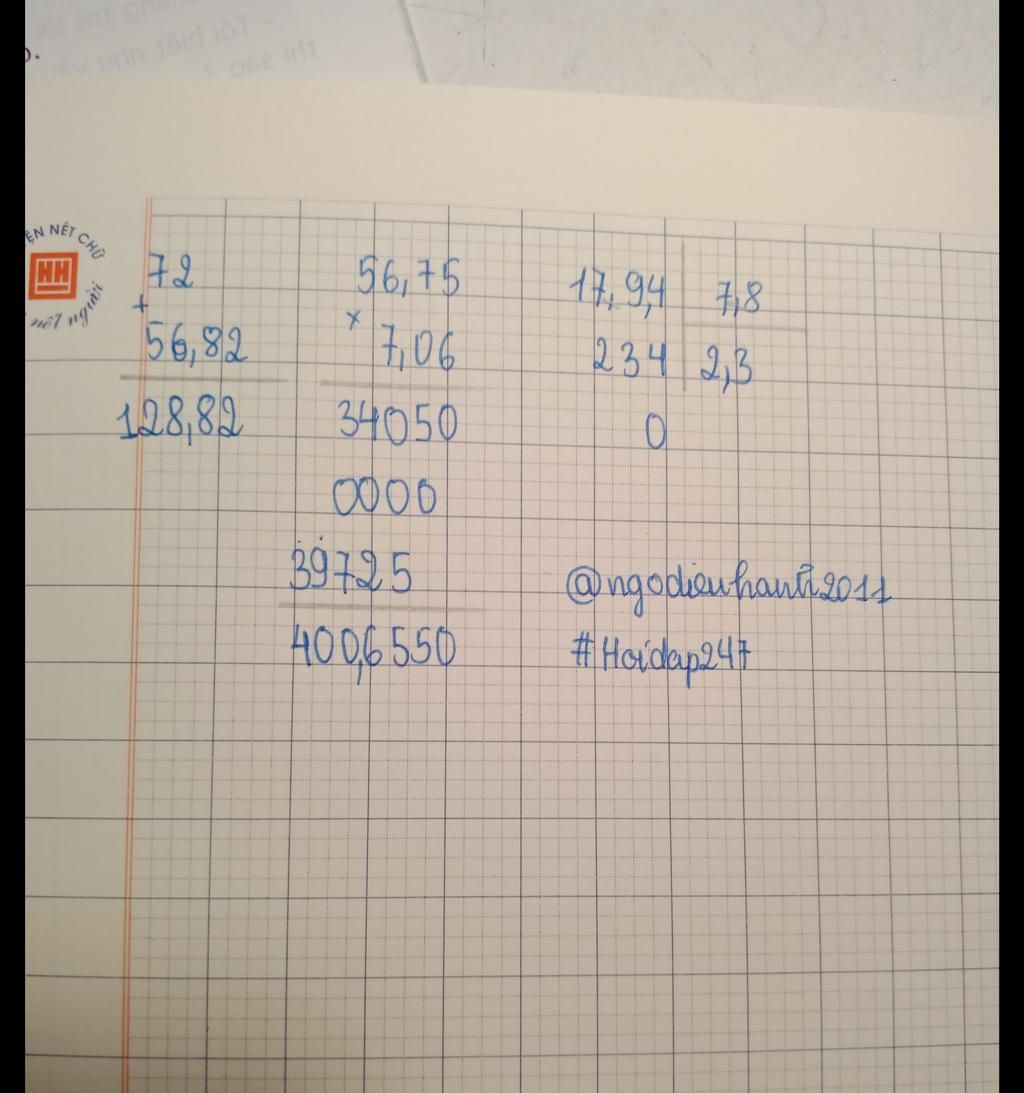 Tôi biết như
thì sao ?
ỆN NẾT CHỮ
HH
nết người
72
+
56,82
128,82
56,75
×
7,06
34050
0000
39725
400,6550
17,9,4 7,8
234 2,3
0
@ngodieuhanh2011
#Hoidap247